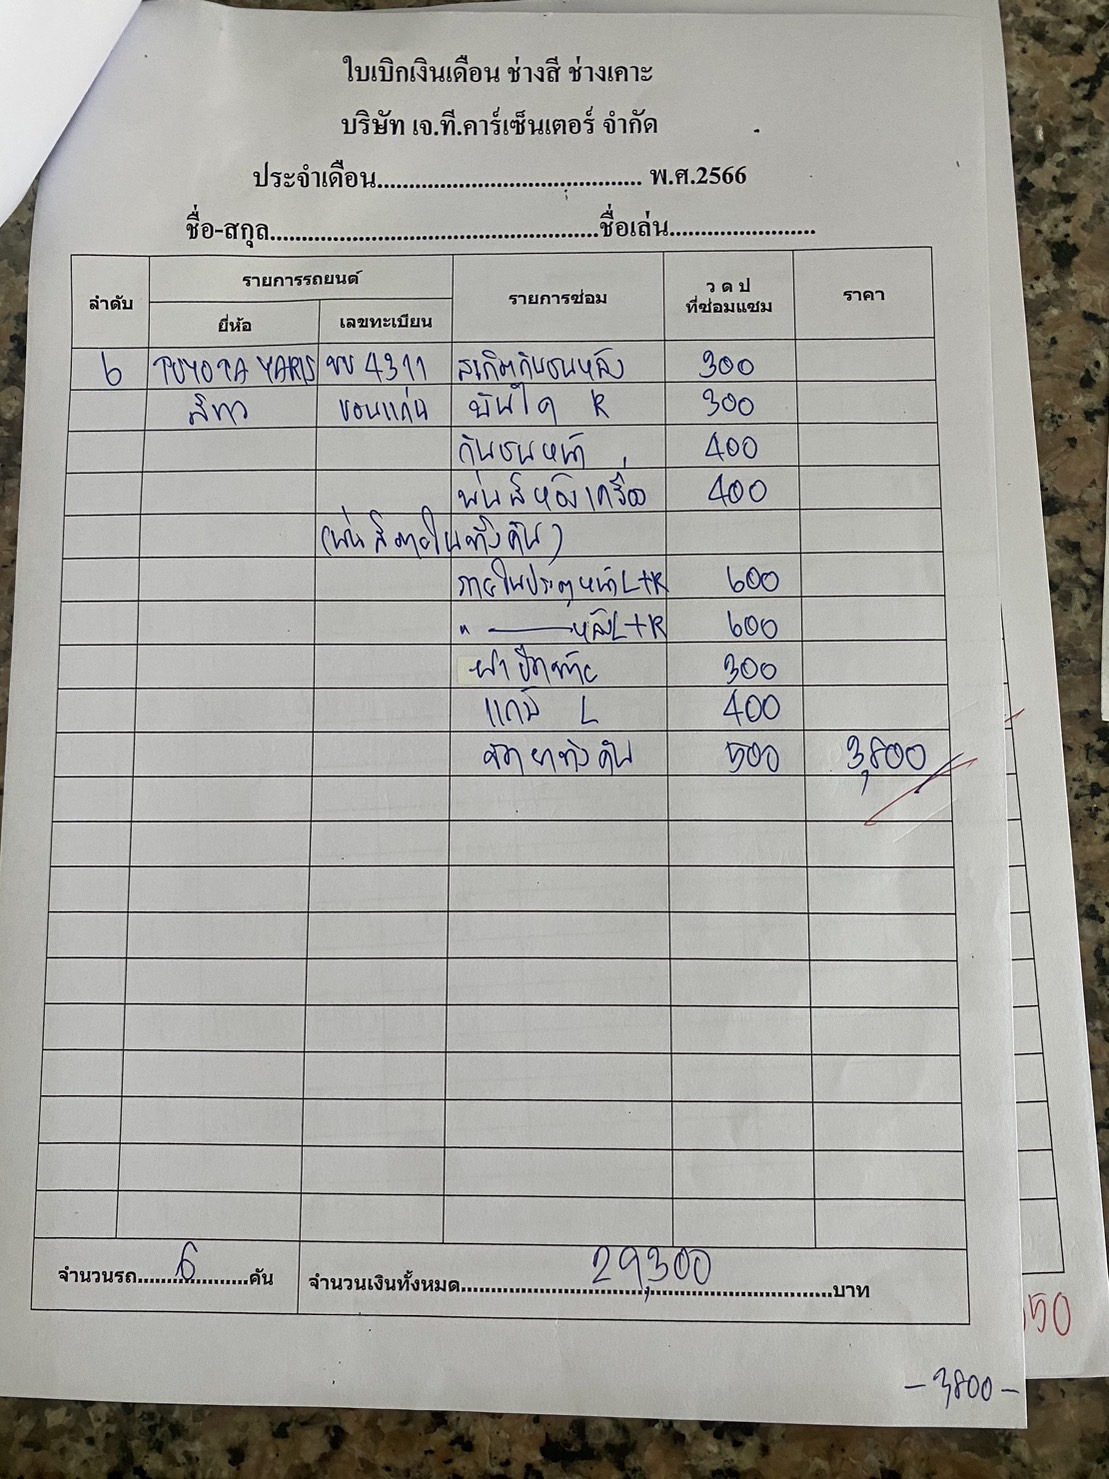 ใบเบิกเงินเดือน ช่างสี ช่างเคาะ
บริษัท เจ.ที.คาร์เซ็นเตอร์ จำกัด
ประจำเดือน.......................................... พ.ศ.2566
ชื่อ-สกุล....................................................ชื่อเล่น.......................
ลำดับ รายการรถยนต์ รายการซ่อม ว ด ป ที่ซ่อมแซม ราคา
ยี่ห้อ เลขทะเบียน
6 TOYOTA YARIS ขบ 4311 สเกิตกันชนหลัง 300
สีขาว ขอนแก่น บันได R 300
กันชนหน้า 400
พ่นสีห้องเครื่อง 400
(พ่นสีภายในทั้งคัน)
ภายในประตูหน้าL+R 600
" หลังL+R 600
300
แก้ม L 400
ทั้งคัน 500 3,800
จำนวนรถ......6......คัน จำนวนเงินทั้งหมด......29,300......บาท
50
-3800-